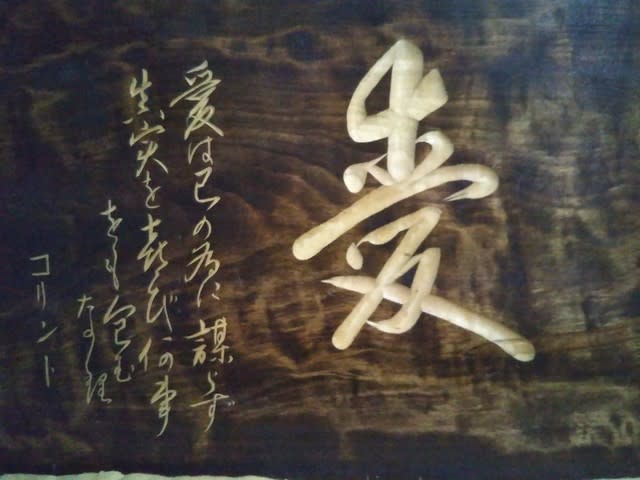 愛
愛は己の為に謀らず
真実を喜び何事
をも包む
なり
コリント